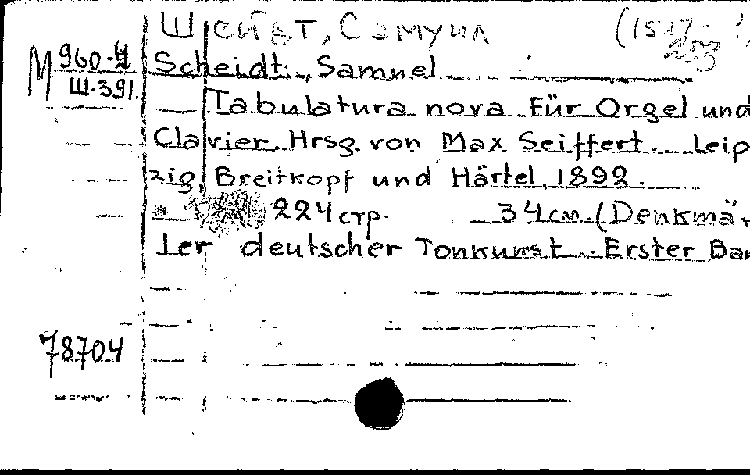 Шейдт, Самуил
М 960-4
Ш-391
Scheidt, Samuel
Tabulatura nova Für Orgel und
Clavier. Hrsg. von Max Seiffert. Leip
zig, Breitkopf und Härtel, 1892.
224 стр. 34 см. (Denkmä-
ler deutscher Tonkunst. Erster Ban
78704